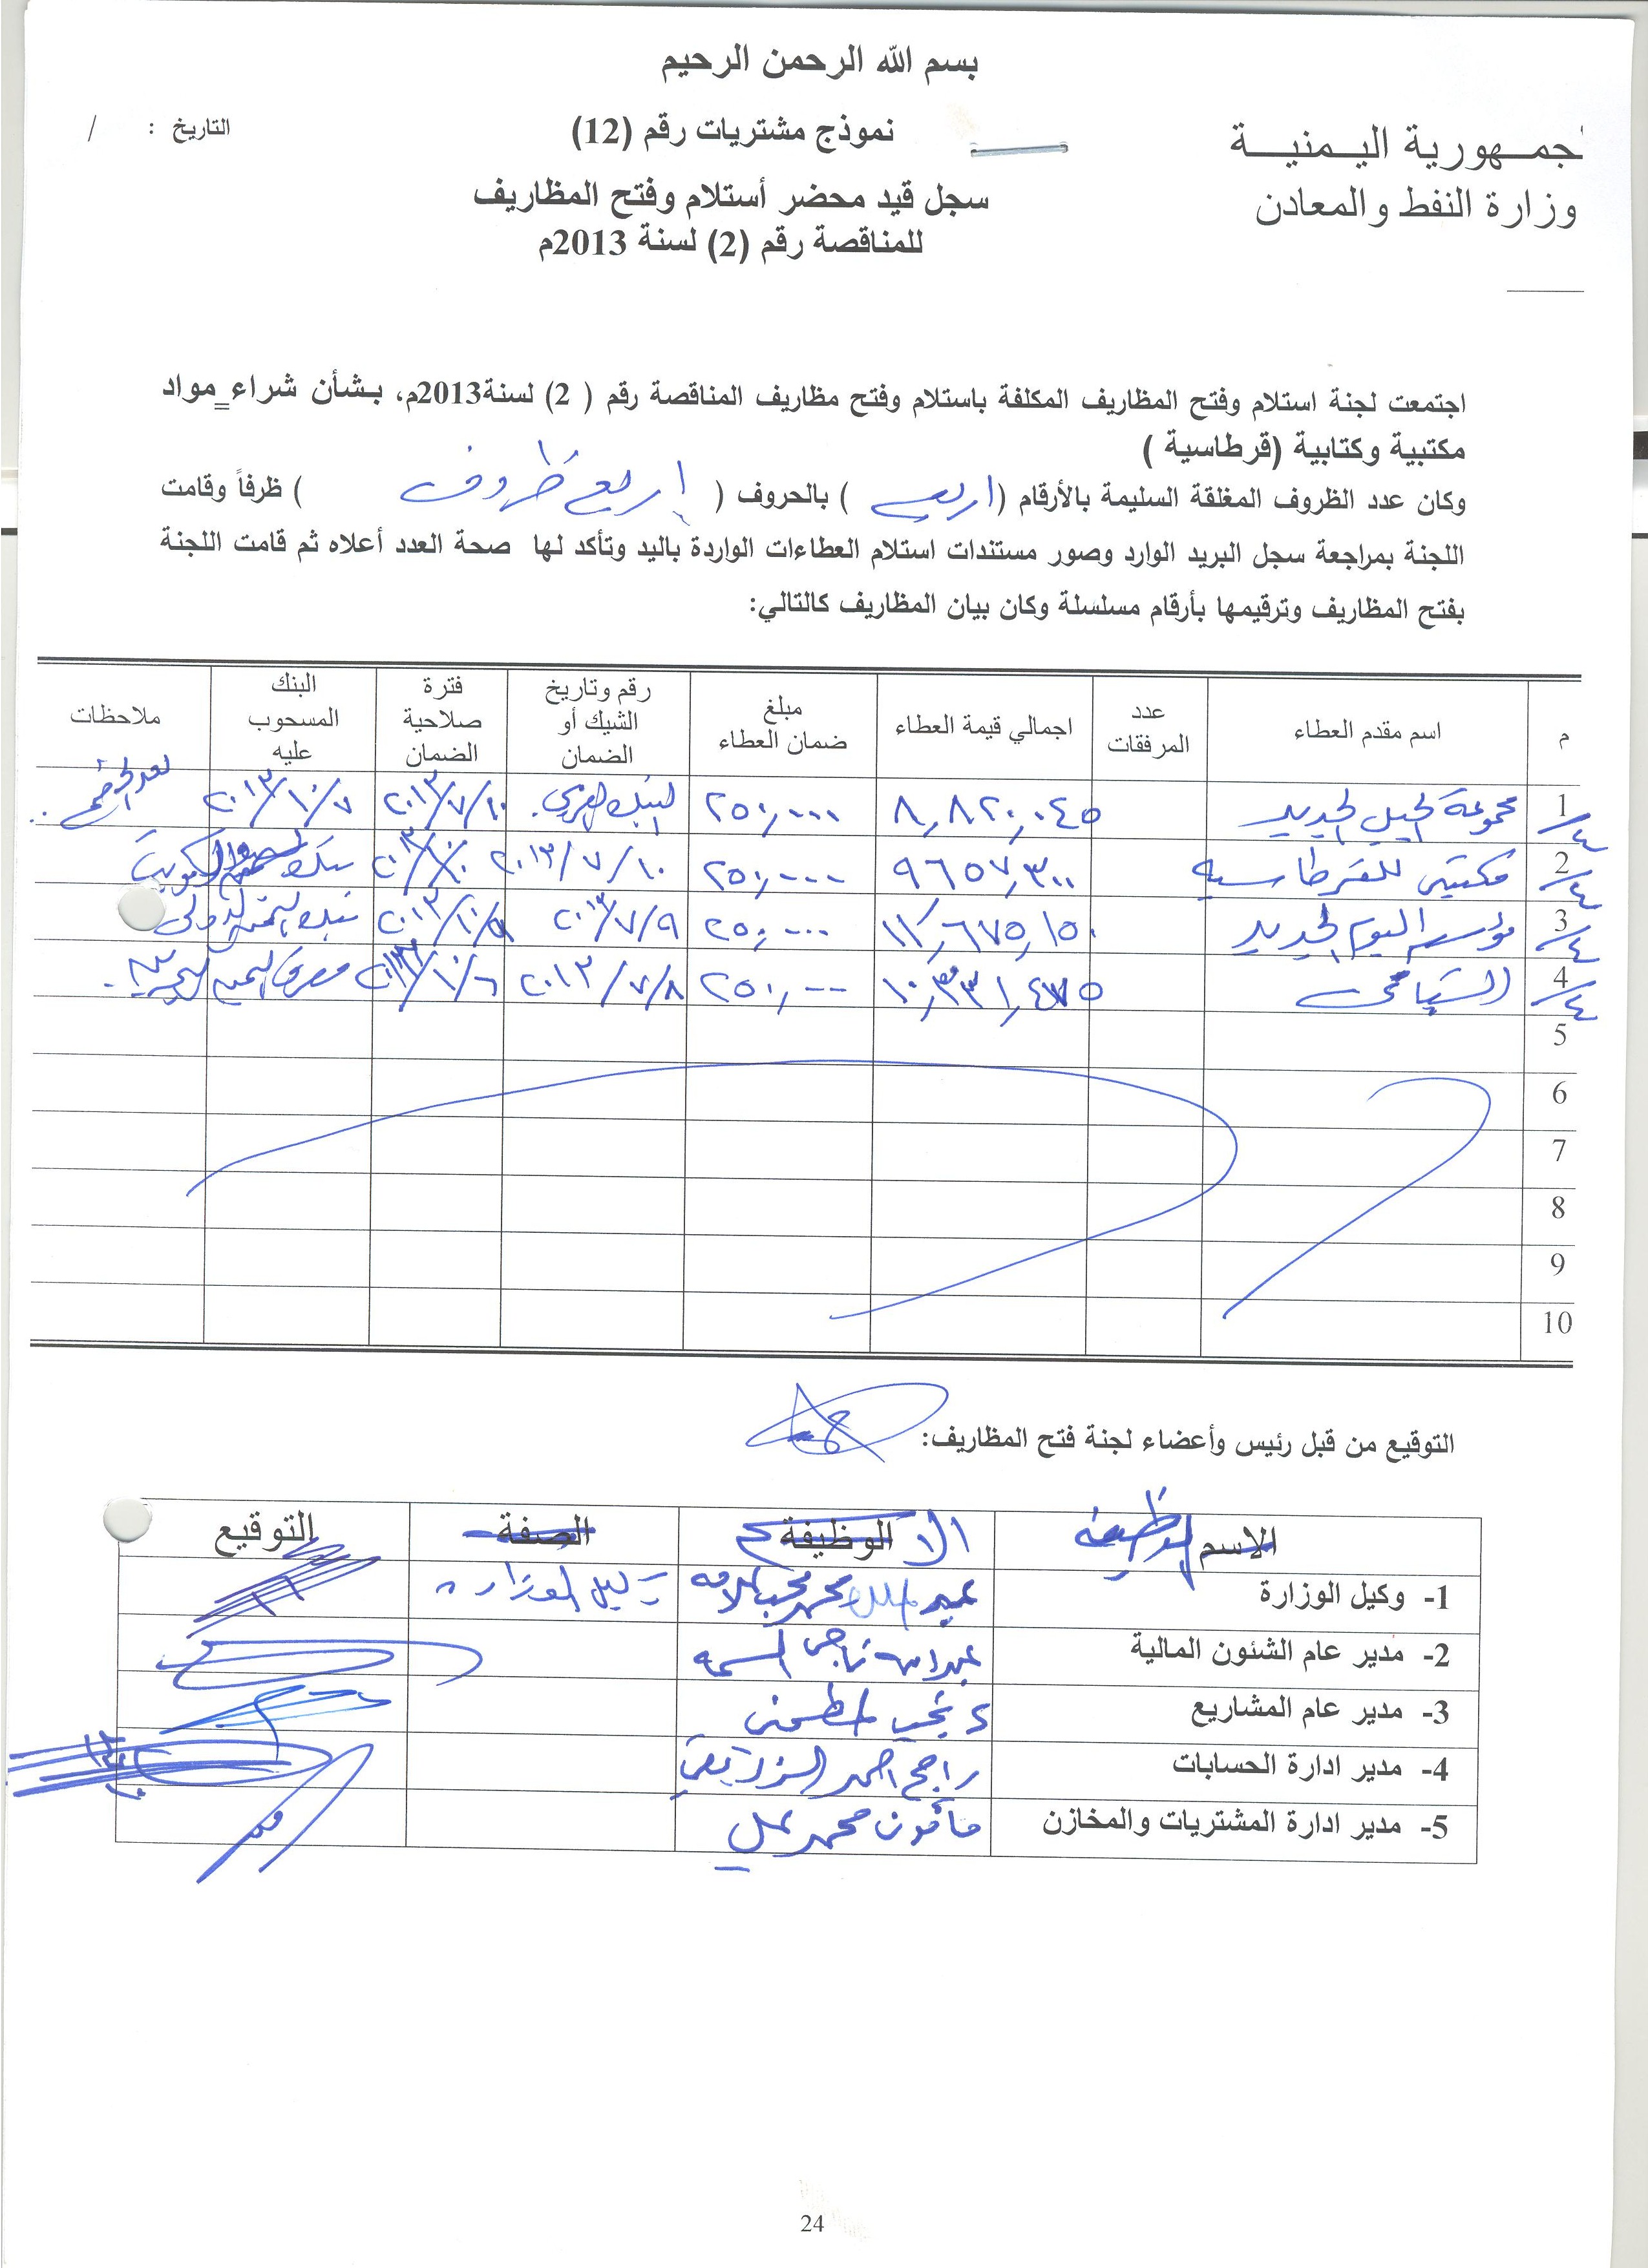 بسم الله الرحمن الرحيم
جمـــهورية اليـمنيـــة
نموذج مشتريات رقم (12)
التاريخ : /
وزارة النفط والمعادن
سجل قيد محضر أستلام وفتح المظاريف
للمناقصة رقم (2) لسنة 2013م
اجتمعت لجنة استلام وفتح المظاريف المكلفة باستلام وفتح مظاريف المناقصة رقم ( 2) لسنة2013م، بـشأن شراء مواد
مكتبية وكتابية (قرطاسية )
وكان عدد الظروف المغلقة السليمة بالأرقام (اربع ) بالحروف ( اربع ظروف ) ظرفاً وقامت
اللجنة بمراجعة سجل البريد الوارد وصور مستندات استلام العطاءات الواردة باليد وتأكد لها صحة العدد أعلاه ثم قامت اللجنة
بفتح المظاريف وترقيمها بأرقام مسلسلة وكان بيان المظاريف كالتالي:
م اسم مقدم العطاء عدد المرفقات اجمالي قيمة العطاء مبلغ ضمان العطاء رقم وتاريخ الشيك أو الضمان فترة صلاحية الضمان البنك المسحوب عليه ملاحظات
1/٤ مجموعة الجيل الجديد ٨,٨٢٠,٠٤٥ ٢٥٠,٠٠٠ البنك العربي ٢٠١٣/٧/١٠ ٢٠١٣/١٠/٧
2/٤ مكتبتي للقرطاسية ٩٦٥٧,٣٠٠ ٢٥٠,٠٠٠ ٢٠١٣/٧/١٠ بنك الكويت
3/٤ مؤسسة اليوم الجديد ١١,٦٧٥,١٥٠ ٢٥٠,٠٠٠ ٢٠١٣/٧/٩ بنك اليمن الدولي
4/٤ الشيباني ٢٥٠,٠٠٠ ٢٠١٣/٧/٨ مصرف اليمن البحرين
5
6
7
8
9
10
التوقيع من قبل رئيس وأعضاء لجنة فتح المظاريف:
الاسم الوظيفة الوظيفة الصفة التوقيع
1- وكيل الوزارة وكيل الوزارة
2- مدير عام الشئون المالية عبدالله ناجي
3- مدير عام المشاريع
4- مدير ادارة الحسابات راجح احمد
5- مدير ادارة المشتريات والمخازن مأمون محمد علي
24